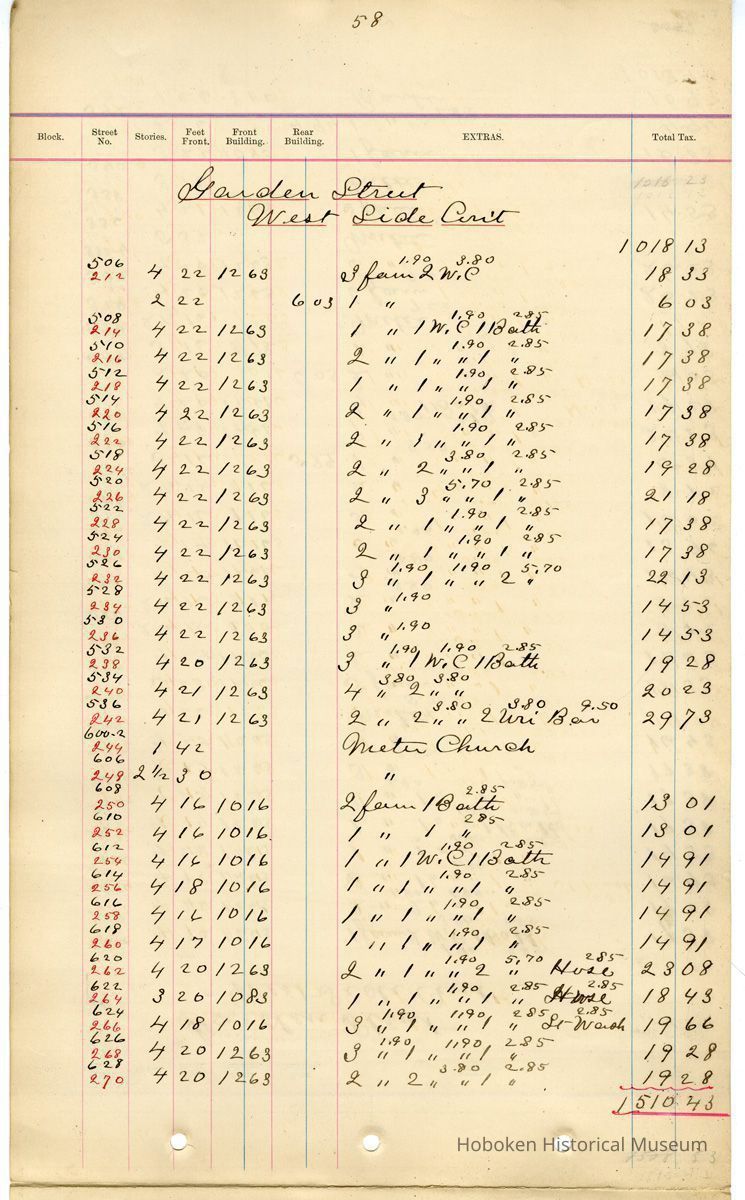 58
Block. Street No. Stories. Feet Front. Front Building. Rear Building. EXTRAS. Total Tax.
Garden Street
West Side Con't
1018 13
506 1.90 3.80
212 4 22 12 63 3 fam 2 W.C 18 33
2 22 6 03 1 " 6 03
508 1.90 2.85
214 4 22 12 63 1 " 1 W.C 1 Bath 17 38
510 1.90 2.85
216 4 22 12 63 2 " 1 " " 1 " 17 38
512 1.90 2.85
218 4 22 12 63 1 " 1 " " 1 " 17 38
514 1.90 2.85
220 4 22 12 63 2 " 1 " " 1 " 17 38
516 1.90 2.85
222 4 22 12 63 2 " 1 " " 1 " 17 38
518 3.80 2.85
224 4 22 12 63 2 " 2 " " 1 " 19 28
520 5.70 2.85
226 4 22 12 63 2 " 3 " " 1 " 21 18
522 1.90 2.85
228 4 22 12 63 2 " 1 " " 1 " 17 38
524 1.90 2.85
230 4 22 12 63 2 " 1 " " 1 " 17 38
526 1.90 1.90 5.70
232 4 22 12 63 3 " 1 " " 2 " 22 13
528 1.90
234 4 22 12 63 3 " 14 53
530 1.90
236 4 22 12 63 3 " 14 53
532 1.90 1.90 2.85
238 4 20 12 63 3 " 1 W.C 1 Bath 19 28
534 3.80 3.80
240 4 21 12 63 4 " 2 " " 20 23
536 3.80 3.80 9.50
242 4 21 12 63 2 " 2 " " 2 Uri Bar 29 73
600-2
244 1 42 Meter Church
606
248 2 1/2 30 "
608 2.85
250 4 16 10 16 2 fam 1 Bath 13 01
610 2.85
252 4 16 10 16 1 " 1 " 13 01
612 1.90 2.85
254 4 16 10 16 1 " 1 W.C 1 Bath 14 91
614 1.90 2.85
256 4 18 10 16 1 " 1 " " 1 " 14 91
616 1.90 2.85
258 4 16 10 16 1 " 1 " " 1 " 14 91
618 1.90 2.85
260 4 17 10 16 1 " 1 " " 1 " 14 91
620 1.90 5.70 2.85
262 4 20 12 63 2 " 1 " " 2 " Hose 23 08
622 1.90 2.85 2.85
264 3 20 10 83 1 " 1 " " 1 " Hose 18 43
624 1.90 1.90 2.85 2.85
266 4 18 10 16 3 " 1 " " 1 " St Wash 19 66
626 1.90 1.90 2.85
268 4 20 12 63 3 " 1 " " 1 " 19 28
628 3.80 2.85
270 4 20 12 63 2 " 2 " " 1 " 19 28
1510 43
Hoboken Historical Museum